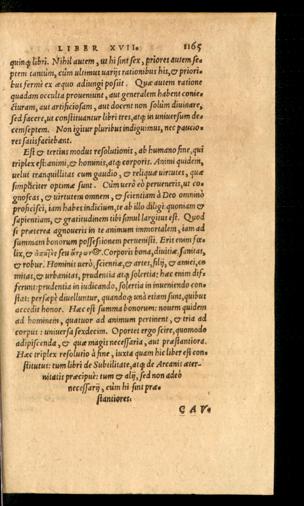 LIBER XVII. 1165
quinq; libri. Nihil autem, ut hi sint sex, priores autem se⸗
ptem tantùm, cùm ultimus uarijs rationibus his, & priori⸗
bus fermè ex æquo adiungi possit. Quæ autem ratione
quadam occulta proueniunt, aut generalem habent conie⸗
cturam, aut artificiosam, aut docent non solùm diuinare,
sed facere, ut constituantur libri tres, atq; in uniuersum de⸗
cemseptem. Non igitur pluribus indiguimus, nec paucio⸗
res satisfaciebant.
Est & tertius modus resolutionis, ab humano fine, qui
triplex est: animi, & hominis, atq; corporis. Animi quidem,
uelut tranquillitas cum gaudio, & reliquæ uirtutes, quæ
simpliciter optimæ sunt. Cùm uerò eò perueneris, ut co⸗
gnoscas, & uirtutem omnem, & scientiam à Deo omninò
proficisci, iam habes indicium, te ab illo diligi: quoniam &
sapientiam, & gratitudinem tibi simul largitus est. Quòd
si præterea agnoueris in te animum immortalem, iam ad
summam bonorum possessionem peruenisti. Eris enim fœ⸗
lix, & seu Corporis bona, diuitiæ, sanitas,
& robur. Hominis uerò, scientiæ, & artes, filij, & amici, co
mitas, & urbanitas, prudentia atq; solertia: hæc enim dif⸗
ferunt: prudentia in iudicando, solertia in inueniendo con⸗
stat: persæpè diuelluntur, quandoq; unà etiam sunt, quibus
accedit honor. Hæc est summa bonorum: nouem quidem
ad hominem, quatuor ad animum pertinent, & tria ad
corpus: uniuersa sexdecim. Oportet ergo scire, quomodo
adipiscenda, & quæ magis necessaria, aut præstantiora.
Hæc triplex resolutio à fine, iuxta quam hic liber est con⸗
stitutus: tum libri de Subtilitate, atq; de Arcanis æter⸗
nitatis præcipuè: tum & alij, sed non adeò
necessarij, cùm hi sint præ⸗
stantiores.
CAV.